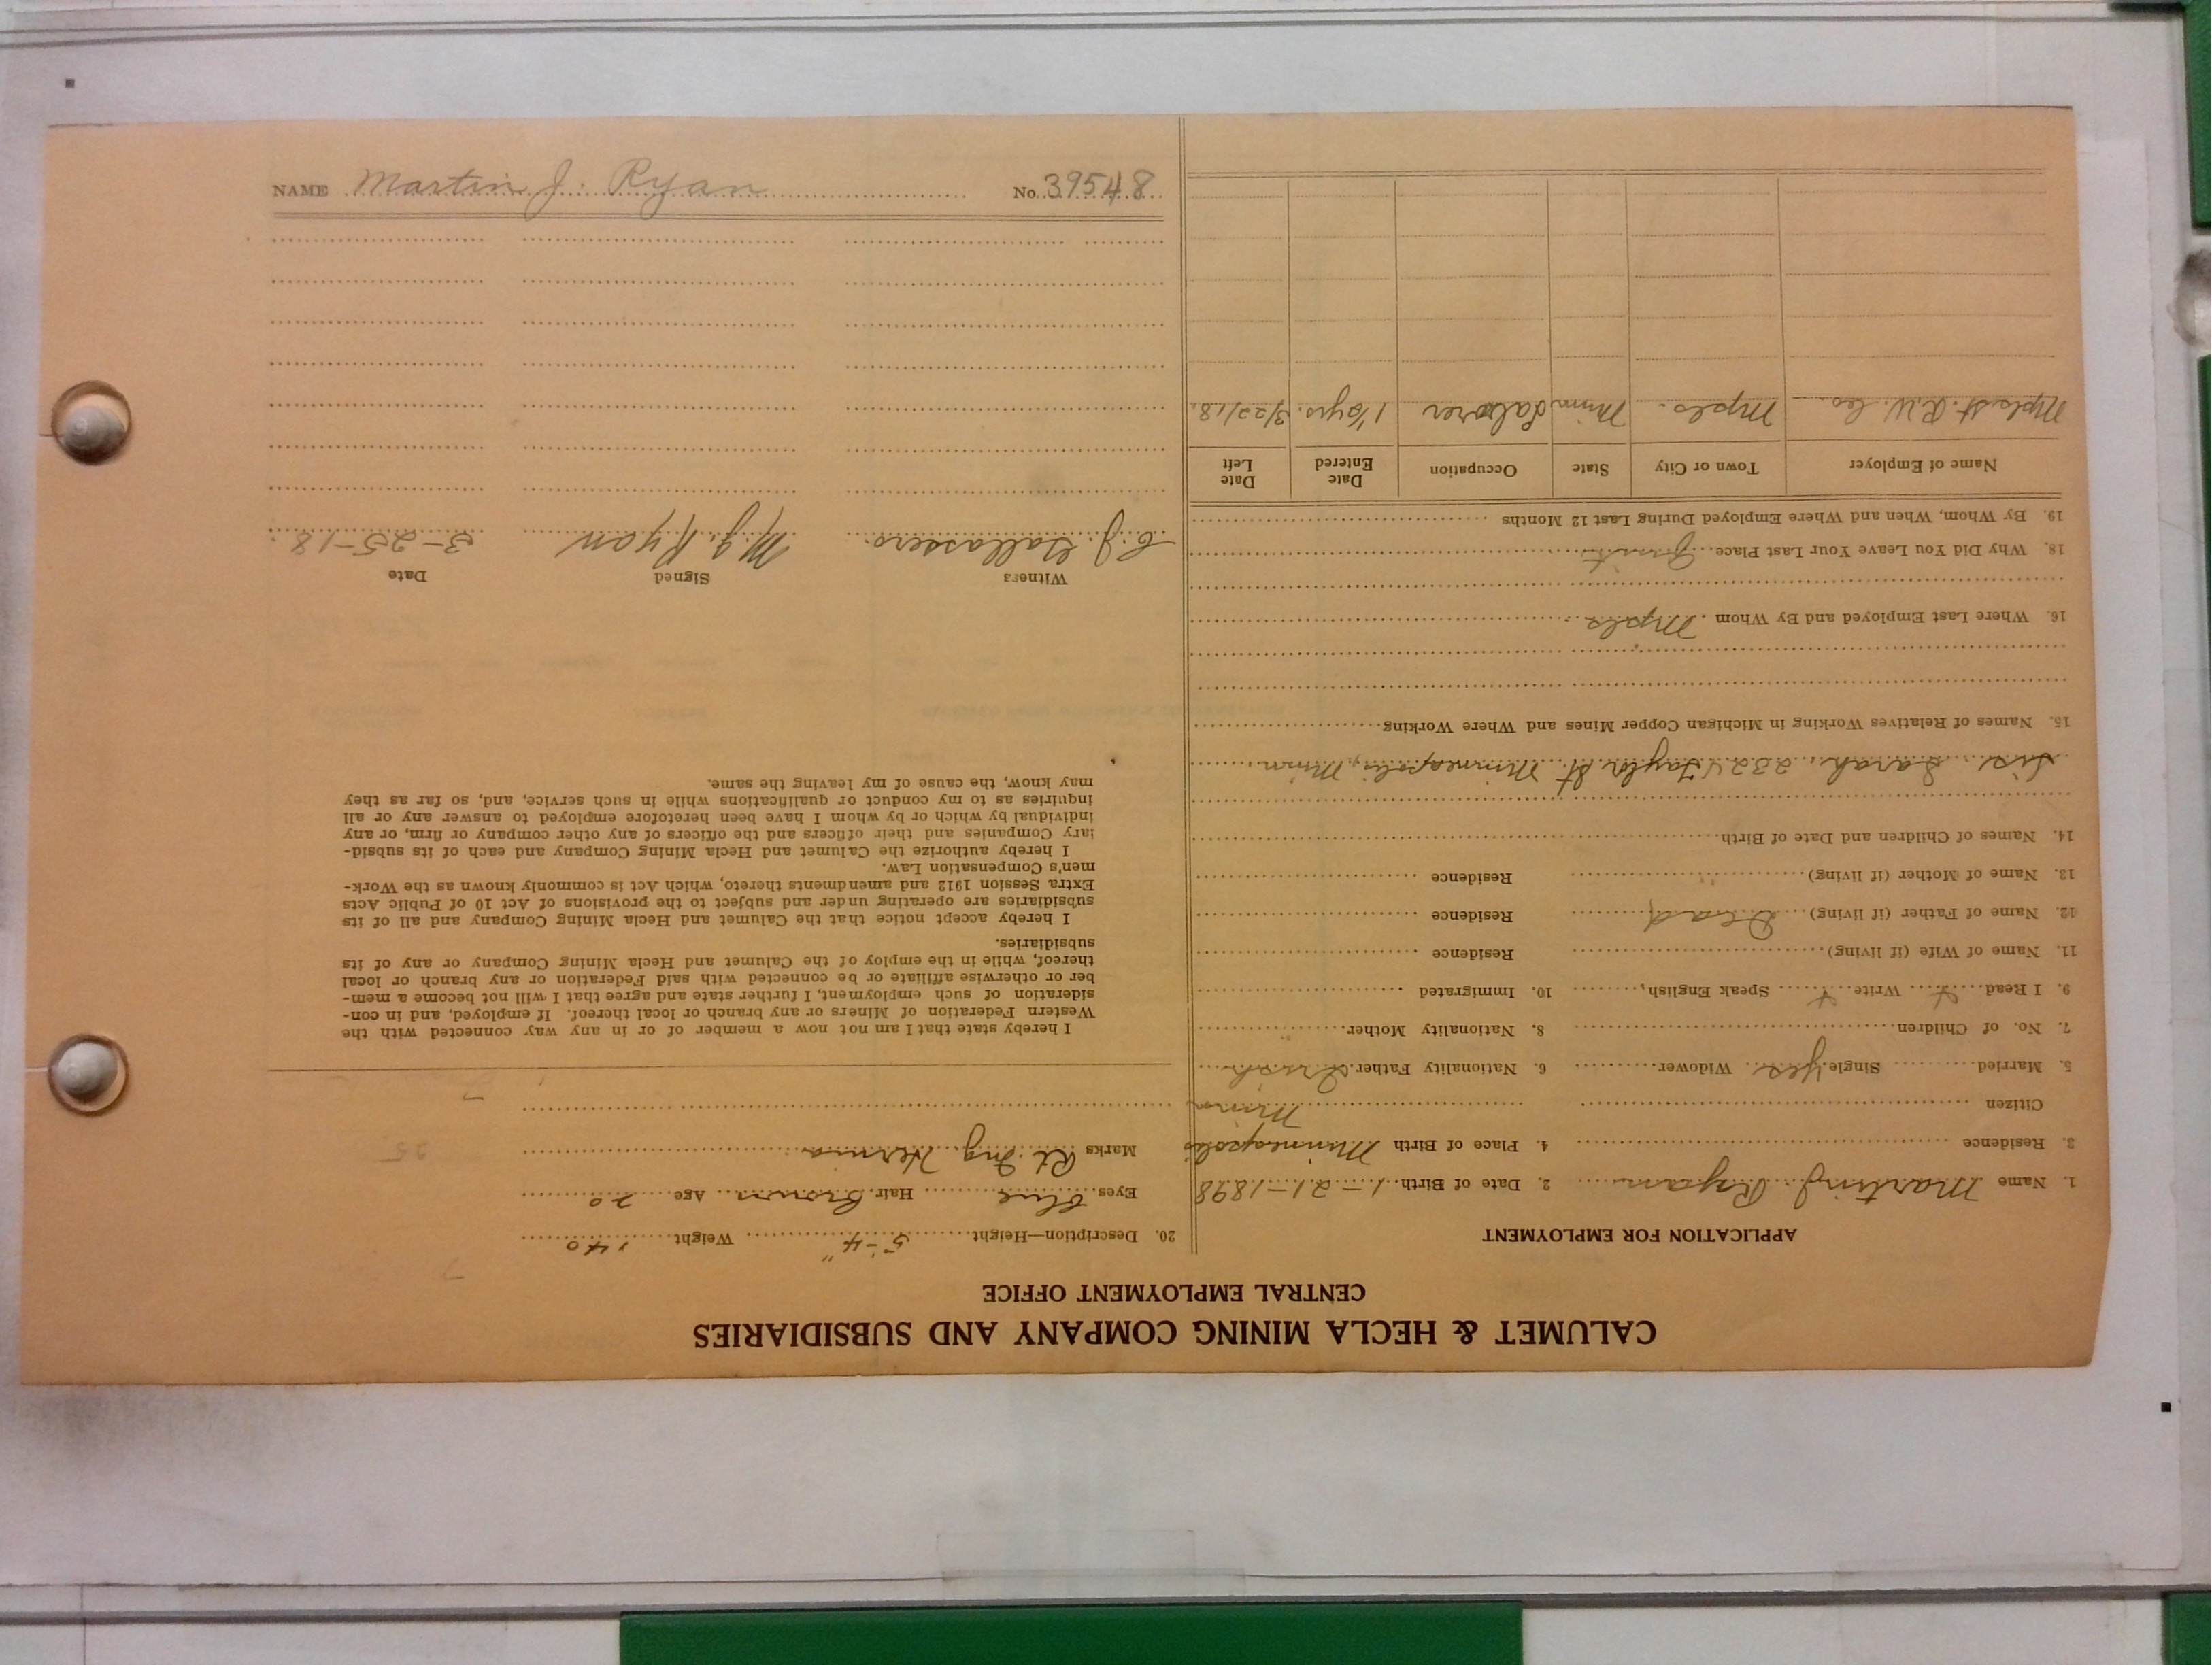 CALUMET & HECLA MINING COMPANY AND SUBSIDIARIES
CENTRAL EMPLOYMENT OFFICE
APPLICATION FOR EMPLOYMENT
1. Name Martin J. Ryan 2. Date of Birth 1-21-1898
3. Residence 4. Place of Birth Minneapolis
Citizen Minn
5. Married Single Yes Widower 6. Nationality Father Irish
7. No. of Children 8. Nationality Mother
9. I Read Write Speak English, 10. Immigrated
11. Name of Wife (if living) Residence
12. Name of Father (if living) Dead Residence
13. Name of Mother (if living) Residence
14. Names of Children and Date of Birth
Sis. Sarah, 2324 Taylor St. Minneapolis, Minn
15. Names of Relatives Working in Michigan Copper Mines and Where Working
16. Where Last Employed and By Whom Mpls
18. Why Did You Leave Your Last Place Quit
19. By Whom, When and Where Employed During Last 12 Months
Name of Employer Town or City State Occupation Date Entered Date Left
Mpls. St. R.W. Co. Mpls. Minn Laborer 3/22/18.
20. Description—Height 5-4" Weight 140
Eyes blue Hair Brown Age 20
Marks Rt. Ing. Hernia
25
I hereby state that I am not now a member of or in any way connected with the
Western Federation of Miners or any branch or local thereof. If employed, and in con-
sideration of such employment, I further state and agree that I will not become a mem-
ber or otherwise affiliate or be connected with said Federation or any branch or local
thereof, while in the employ of the Calumet and Hecla Mining Company or any of its
subsidiaries.
I hereby accept notice that the Calumet and Hecla Mining Company and all of its
subsidiaries are operating under and subject to the provisions of Act 10 of Public Acts
Extra Session 1912 and amendments thereto, which Act is commonly known as the Work-
men's Compensation Law.
I hereby authorize the Calumet and Hecla Mining Company and each of its subsid-
iary Companies and their officers and the officers of any other company or firm, or any
individual by which or by whom I have been heretofore employed to answer any or all
inquiries as to my conduct or qualifications while in such service, and, so far as they
may know, the cause of my leaving the same.
Witness Signed Date
M. J. Ryan 3-25-18
NAME Martin J. Ryan No. 39548